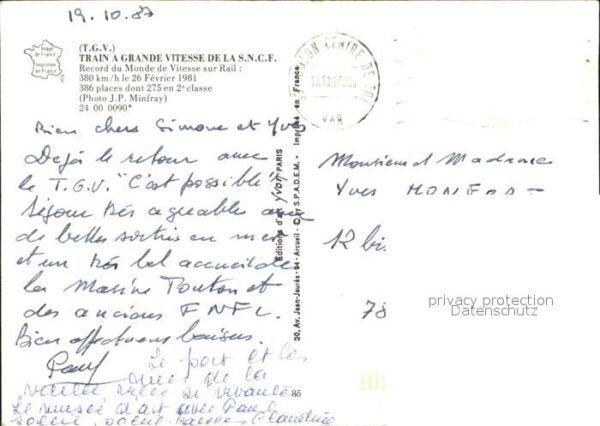 19.10.87
Image de France
Imprimée en France
(T.G.V.)
TRAIN A GRANDE VITESSE DE LA S.N.C.F.
Record du Monde de Vitesse sur Rail :
380 km/h le 26 Février 1981
386 places dont 275 en 2e classe
(Photo J.P. Minfray)
24 00 0090*
Bien chers Simone et Yves
Dejà le retour avec
le T.G.V. "C'est possible"
Séjour très agréable avec
de belles sorties en mer
et un très bel accueil de
la Marine Toulon et
des anciens FNFL.
Bien affectueux baisers.
Paul
Le port et les
de la
vieille ville si vivante
Le musée d'art avec Paul
soleil, Claudine
CENTRE DE TRI
VAR
Editions d'art YVON PARIS
30, Av. Jean-Jaurès - 94 - Arcueil - © by S.P.A.D.E.M. - Imprimé en France
85
Monsieur et Madame
Yves
12 bis
78
privacy protection
Datenschutz